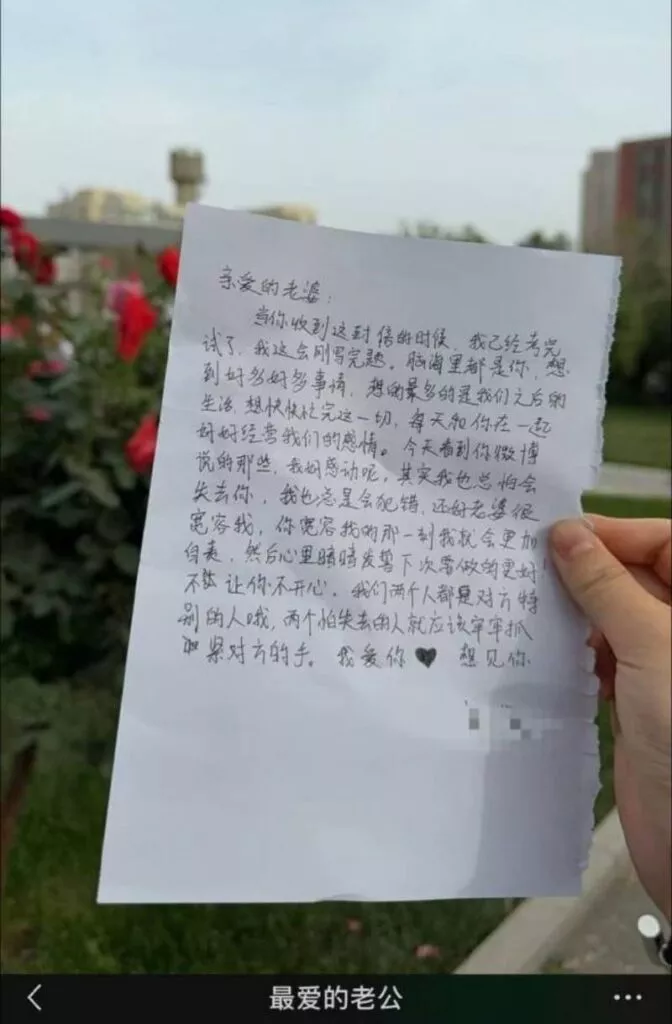 亲爱的老婆：
当你收到这封信的时候，我已经考完
试了，我这会刚写完题。脑海里都是你，想
到好多好多事情，想的最多的是我们之后的
生活，想快快忙完这一切，每天和你在一起
好好经营我们的感情。今天看到你微博
说的那些，我好感动呢，其实我也总怕会
失去你，我也总是会犯错，还好老婆很
宽容我，你宽容我的那一刻我就会更加
自责，然后心里暗暗发誓下次要做的更好！
不让你不开心。我们两个人都是对方特
别的人哦，两个怕失去的人就应该牢牢抓
紧对方的手。我爱你♥ 想见你
最爱的老公